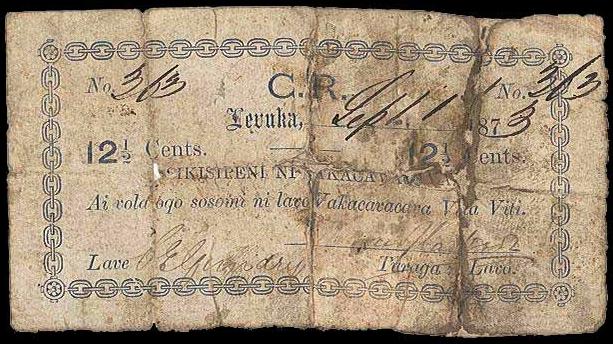 No. 363 C.R. No. 363
Levuka, Sept 1 1873
12½ Cents. 12½ Cents.
SIKISIPENI NI
Ai vola oqo sosomi ni lavo Vakacavacava Viti.
Lave Turaga ni Lavo.